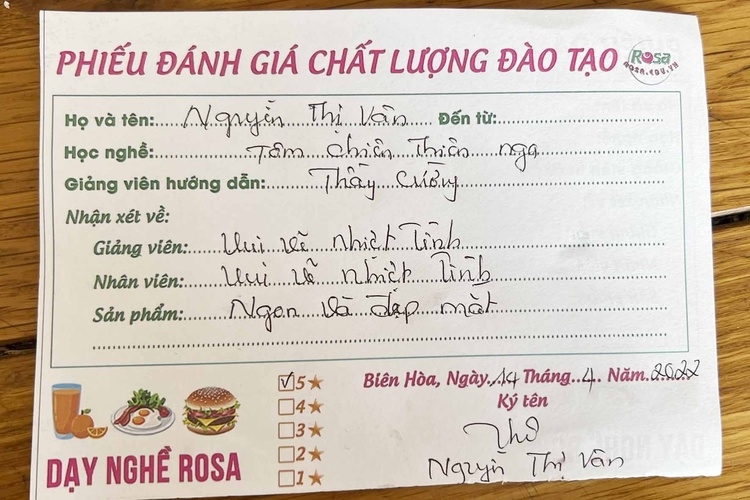 PHIẾU ĐÁNH GIÁ CHẤT LƯỢNG ĐÀO TẠO Rosa
ROSA.EDU.VN
Họ và tên: Nguyễn Thị Vân Đến từ:
Học nghề: Tôm chiên Thiên nga
Giảng viên hướng dẫn: Thầy Cường
Nhận xét về:
Giảng viên: Vui vẽ Nhiệt Tình
Nhân viên: Vui vẽ Nhiệt Tình
Sản phẩm: Ngon và đẹp mắt
5★ Biên Hòa, Ngày 14 Tháng 4 Năm 2022
4★ Ký tên
3★
2★ Nguyễn Thị Vân
1★
DẠY NGHỀ ROSA